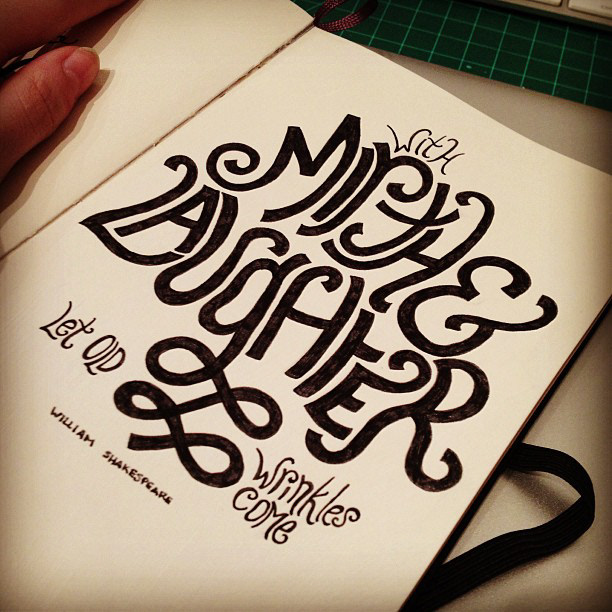 With
MIRTH &
LAUGHTER
Let OLD
Wrinkles
COME
WILLIAM SHAKESPEARE